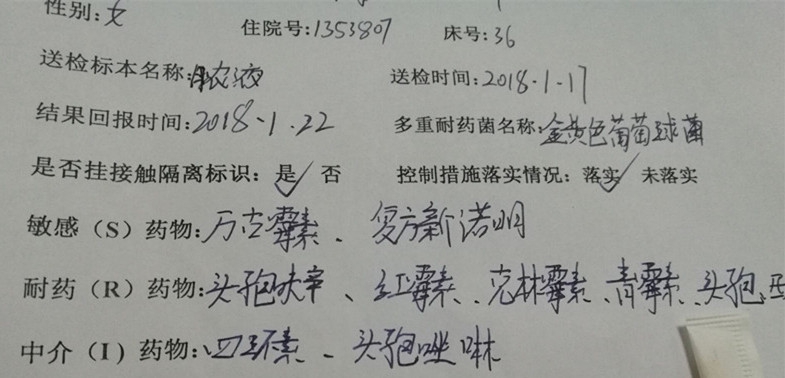 性别:女
住院号:1353807 床号:36
送检标本名称:脓液 送检时间:2018-1-17
结果回报时间:2018-1.22 多重耐药菌名称:金黄色葡萄球菌
是否挂接触隔离标识：是✓ 否 控制措施落实情况：落实✓ 未落实
敏感（S）药物:万古霉素、复方新诺明
耐药（R）药物:头孢呋辛、红霉素、克林霉素、青霉素、头孢
中介（I）药物:四环素、头孢唑啉